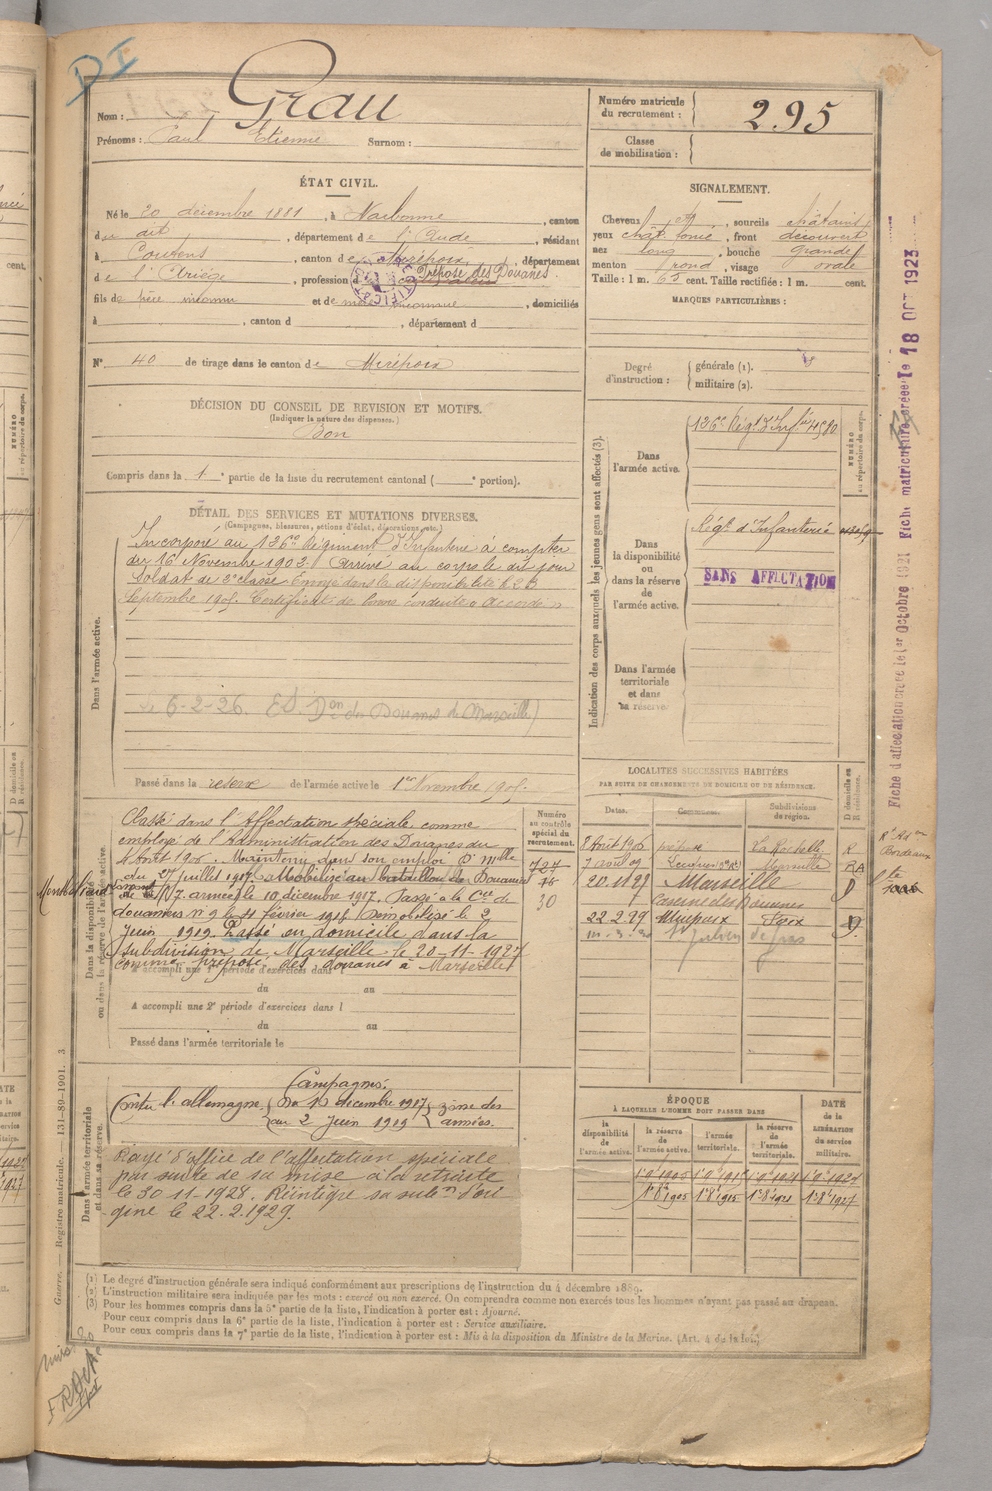 DI
Nom : Grau
Prénoms : Paul Etienne Surnom :
Numéro matricule du recrutement : 295
Classe de mobilisation :
ÉTAT CIVIL.
Né le 20 décembre 1881, à Narbonne, canton
du dit, département de l'Aude, résidant
à Couzens, canton de Mirepoix, département
de l'Ariège, profession de Préposé des Douanes.
fils de père inconnu et de mère inconnue, domiciliés
à , canton d , département d
N° 40 de tirage dans le canton de Mirepoix
SIGNALEMENT.
Cheveux , sourcils châtains
yeux chât. foncé, front découvert
nez long, bouche grande
menton rond, visage ovale
Taille : 1 m. 65 cent. Taille rectifiée : 1 m. cent.
MARQUES PARTICULIÈRES :
Degré d'instruction : générale (1).
militaire (2).
DÉCISION DU CONSEIL DE REVISION ET MOTIFS.
(Indiquer la nature des dispenses.)
Bon
Compris dans la 1e partie de la liste du recrutement cantonal ( e portion).
DÉTAIL DES SERVICES ET MUTATIONS DIVERSES.
(Campagnes, blessures, actions d'éclat, décorations, etc.)
Dans l'armée active.
Incorporé au 136e Régiment d'Infanterie à compter
du 16 Novembre 1903. Arrivé au corps le dit jour
Soldat de 2e classe. Envoyé dans la disponibilité le 23
Septembre 1905. Certificat de bonne conduite accordé
6-2-26. Ed. Don des Douanes de Marseille)
Passé dans la reserve de l'armée active le 1er Novembre 1905.
Indication des corps auxquels les jeunes gens sont affectés (3).
NUMÉRO au répertoire du corps.
Dans l'armée active.
136e Régt d'Infie 4580
Dans la disponibilité ou dans la réserve de l'armée active.
Régt d'Infanterie
SANS AFFECTATION
Dans l'armée territoriale et dans sa réserve.
Fiche d'affectation créée le 1er Octobre 1921 Fiche matriculaire créée le 18 OCT 1923
Dans la disponibilité ou dans la réserve de l'armée active.
Classé dans l'Affectation spéciale comme
employé de l'Administration des Douanes du
4 Août 1906. Maintenu dans son emploi
du 27 juillet 1917. Mobilisé au bataillon des Douaniers
armée le 10 décembre 1917. Passé à la Cie de
douaniers n° 9 le 11 février 1918. Démobilisé le 2
Juin 1919. Passé en domicile dans la
subdivision de Marseille le 20-11-1927
comme préposé des douanes à Marseille
A accompli une 1re période d'exercices dans
du au
A accompli une 2e période d'exercices dans l
du au
Passé dans l'armée territoriale le
Numéro au contrôle spécial du recrutement.
727
30
LOCALITÉS SUCCESSIVES HABITÉES
PAR SUITE DE CHANGEMENTS DE DOMICILE OU DE RÉSIDENCE.
Dates. Communes. Subdivisions de région. D domicile ou R résidence.
8 Août 1906 La Rochelle R
7 avril 09 Marseille RA
20.11.27 Marseille D
Caserne des Douanes
22.2.29 Mirepoix Foix D
St Julien de gras
Bordeaux
Dans l'armée territoriale et dans sa réserve.
Campagnes:
Contre l'allemagne { du 10 decembre 1917 au 2 Juin 1919 } zône des armées.
Rayé d'office de l'affectation spéciale
par suite de sa mise à la retraite
le 30-11-1928. Réintègre sa subon d'ori
gine le 22.2.1929.
ÉPOQUE
À LAQUELLE L'HOMME DOIT PASSER DANS
la disponibilité de l'armée active. la réserve de l'armée active. l'armée territoriale. la réserve de l'armée territoriale. DATE de la LIBÉRATION du service militaire.
1er 8bre 1905 1er 8bre 1915 1er 8bre 1921 1er 8bre 1927
Guerre. — Registre matricule. — 131-89-1901. 3
(1) Le degré d'instruction générale sera indiqué conformément aux prescriptions de l'instruction du 4 décembre 1889.
(2) L'instruction militaire sera indiquée par les mots : exercé ou non exercé. On comprendra comme non exercés tous les hommes n'ayant pas passé au drapeau.
(3) Pour les hommes compris dans la 5e partie de la liste, l'indication à porter est : Ajourné.
Pour ceux compris dans la 6e partie de la liste, l'indication à porter est : Service auxiliaire.
Pour ceux compris dans la 7e partie de la liste, l'indication à porter est : Mis à la disposition du Ministre de la Marine. (Art. 4 de la loi.)